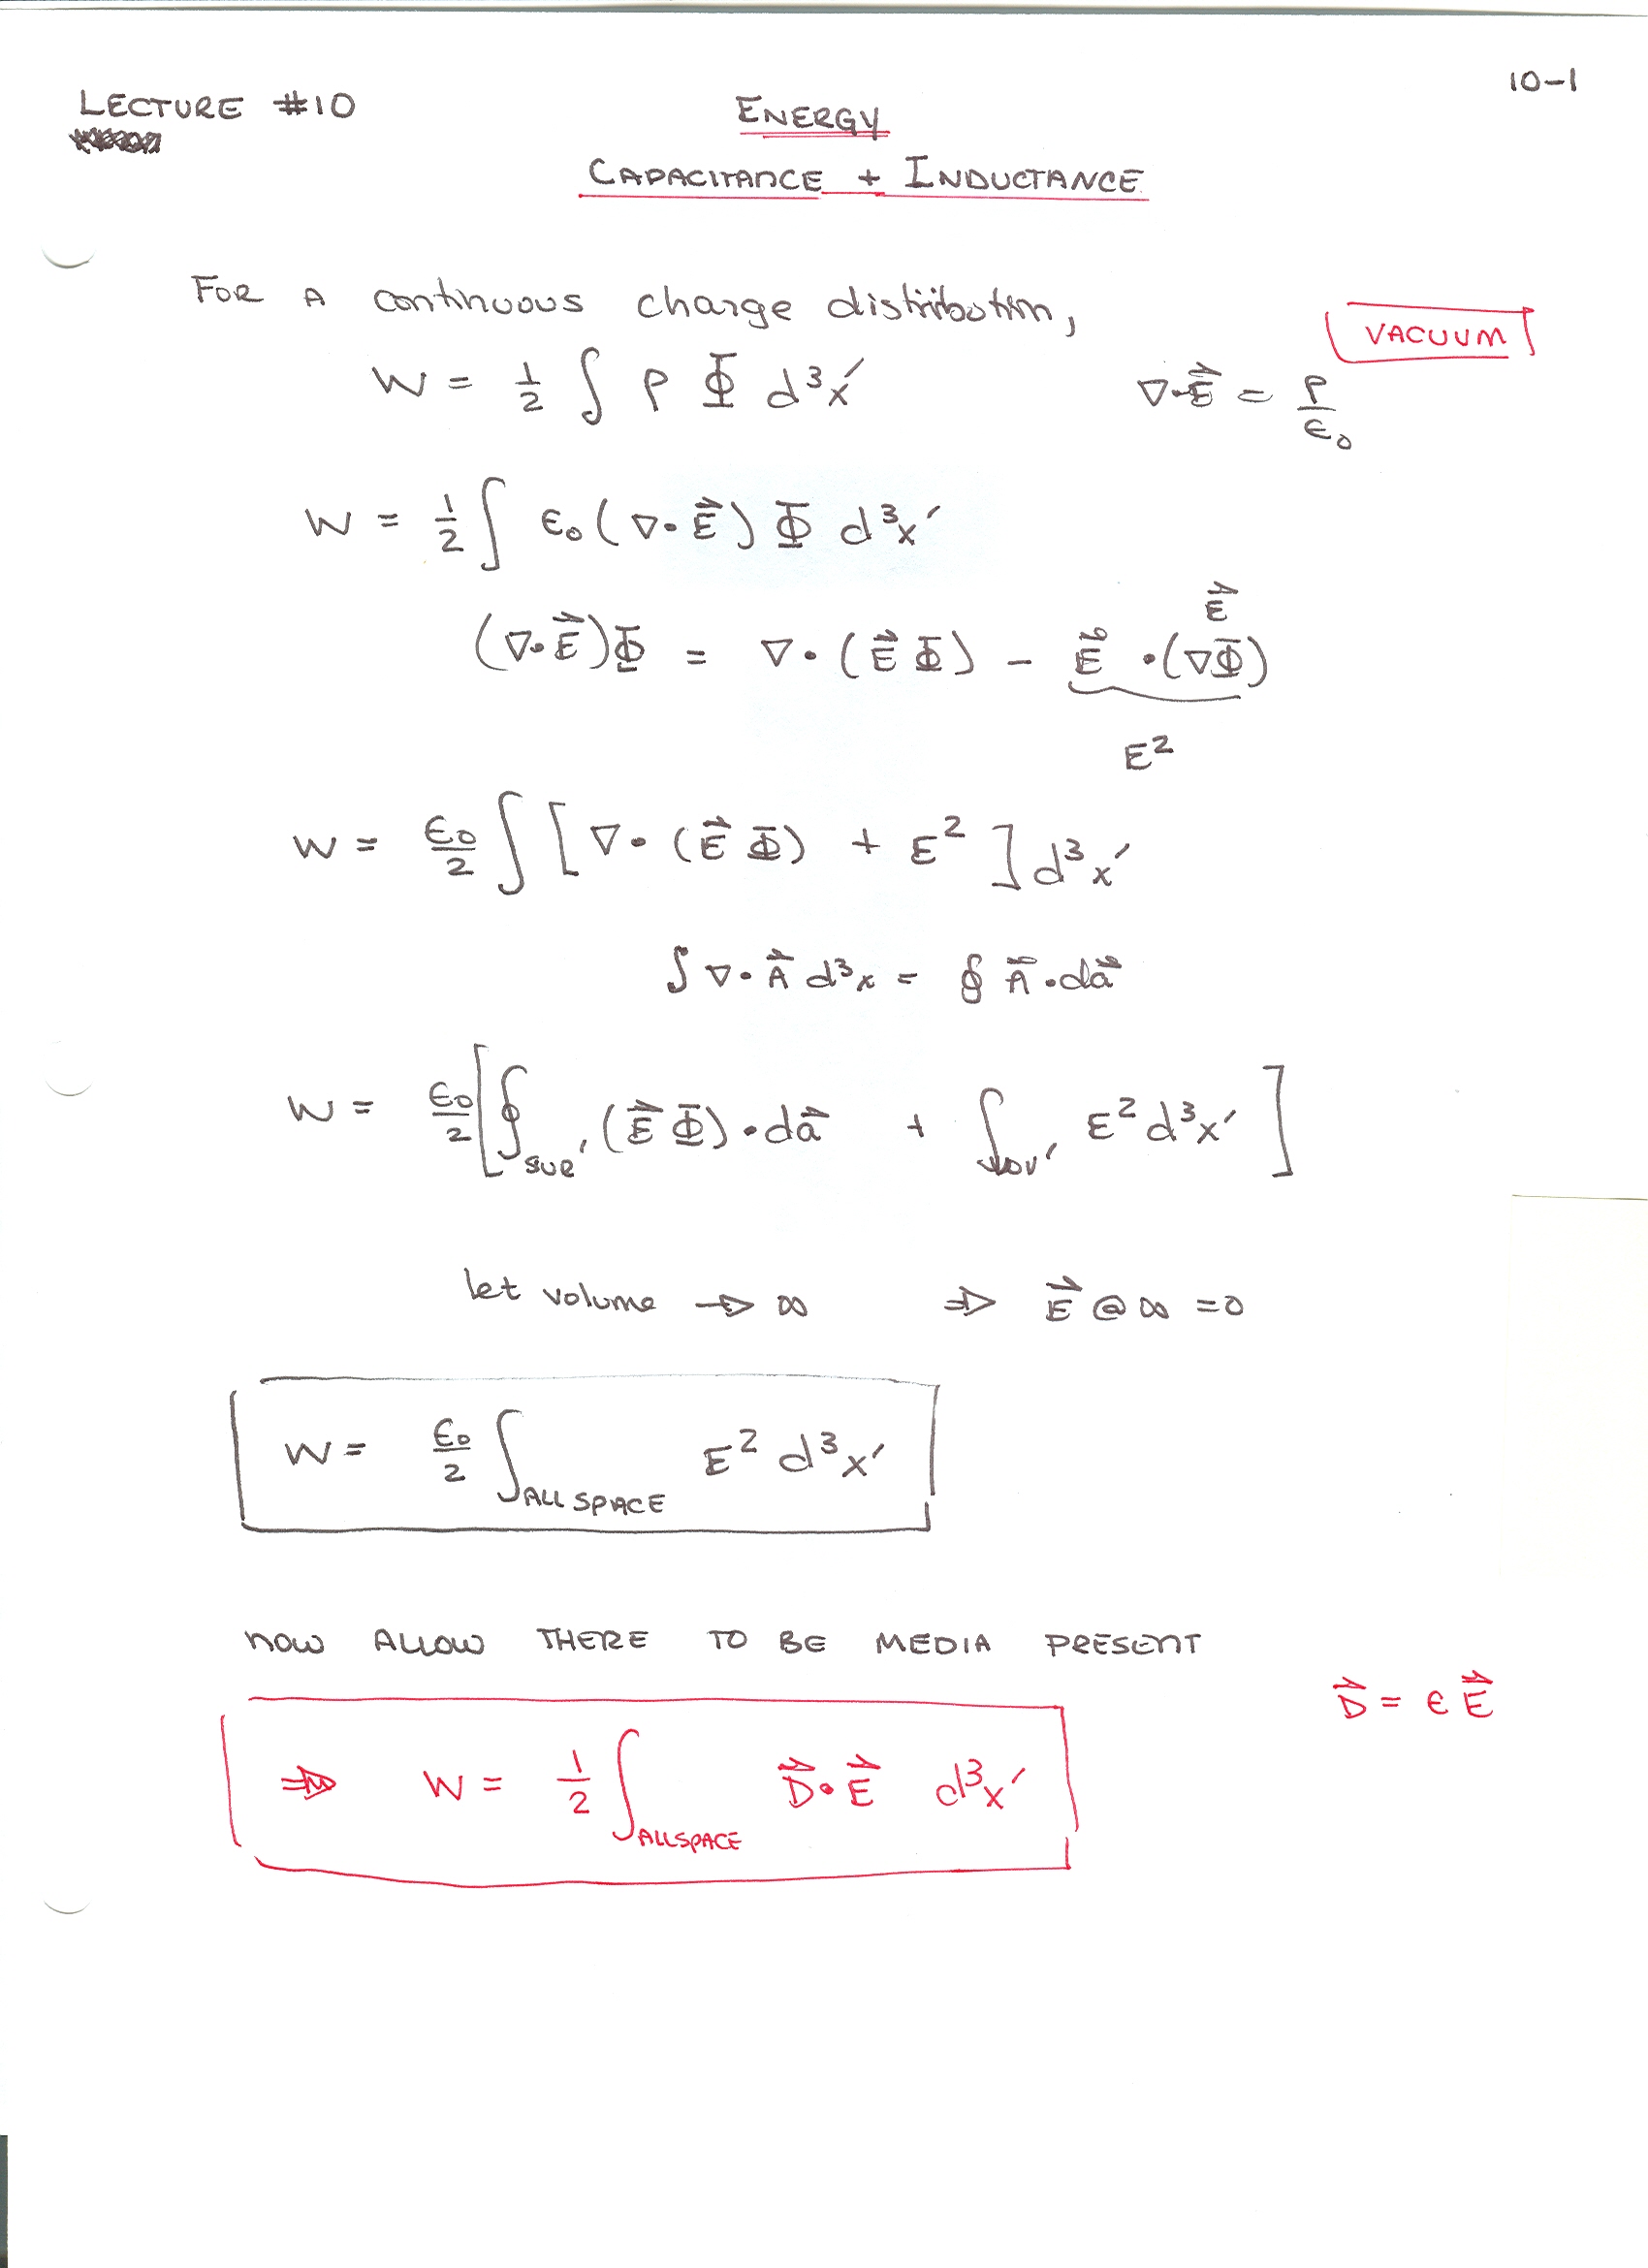 10-1
LECTURE #10
ENERGY
CAPACITANCE + INDUCTANCE
FOR A continuous charge distribution,
VACUUM
W = 1/2 ∫ ρ Φ d³x′
∇·E⃗ = ρ/ε₀
W = 1/2 ∫ ε₀(∇·E⃗)Φ d³x′
E⃗
(∇·E⃗)Φ = ∇·(E⃗Φ) − E⃗·(∇Φ)
E²
W = ε₀/2 ∫ [∇·(E⃗Φ) + E²] d³x′
∫∇·A⃗ d³x = ∮ A⃗·da⃗
W = ε₀/2 [∮_SUR′ (E⃗Φ)·da⃗ + ∫_VOV′ E² d³x′]
let volume → ∞ ⇒ E⃗ @ ∞ = 0
W = ε₀/2 ∫_ALL SPACE E² d³x′
NOW ALLOW THERE TO BE MEDIA PRESENT
D⃗ = ε E⃗
⇒ W = 1/2 ∫_ALL SPACE D⃗·E⃗ d³x′